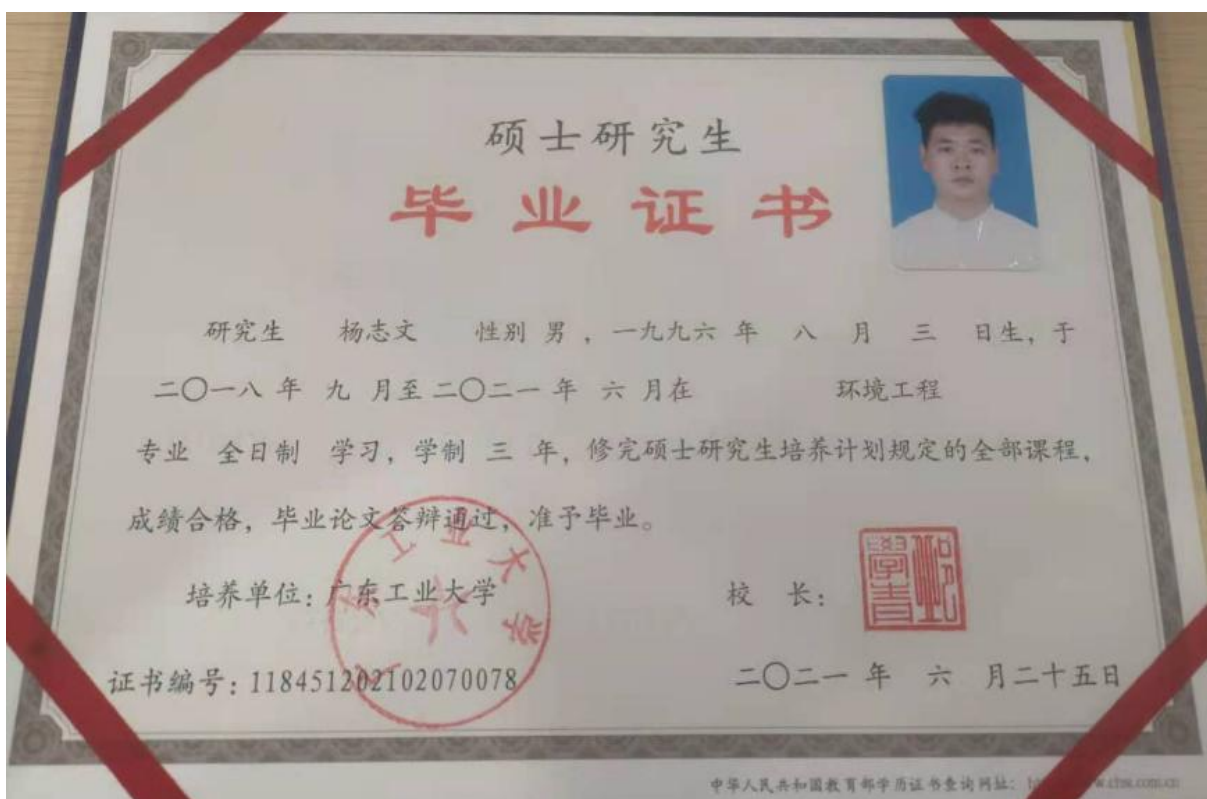 硕士研究生
毕业证书
研究生 杨志文 性别 男 ，一九九六 年 八 月 三 日生，于
二〇一八 年 九 月至 二〇二一 年 六 月在 环境工程
专业 全日制 学习，学制 三 年，修完硕士研究生培养计划规定的全部课程，
成绩合格，毕业论文答辩通过，准予毕业。
培养单位：广东工业大学
工业大学
校 长：
证书编号：118451202102070078
二〇二一 年 六 月二十五日
中华人民共和国教育部学历证书查询网址：